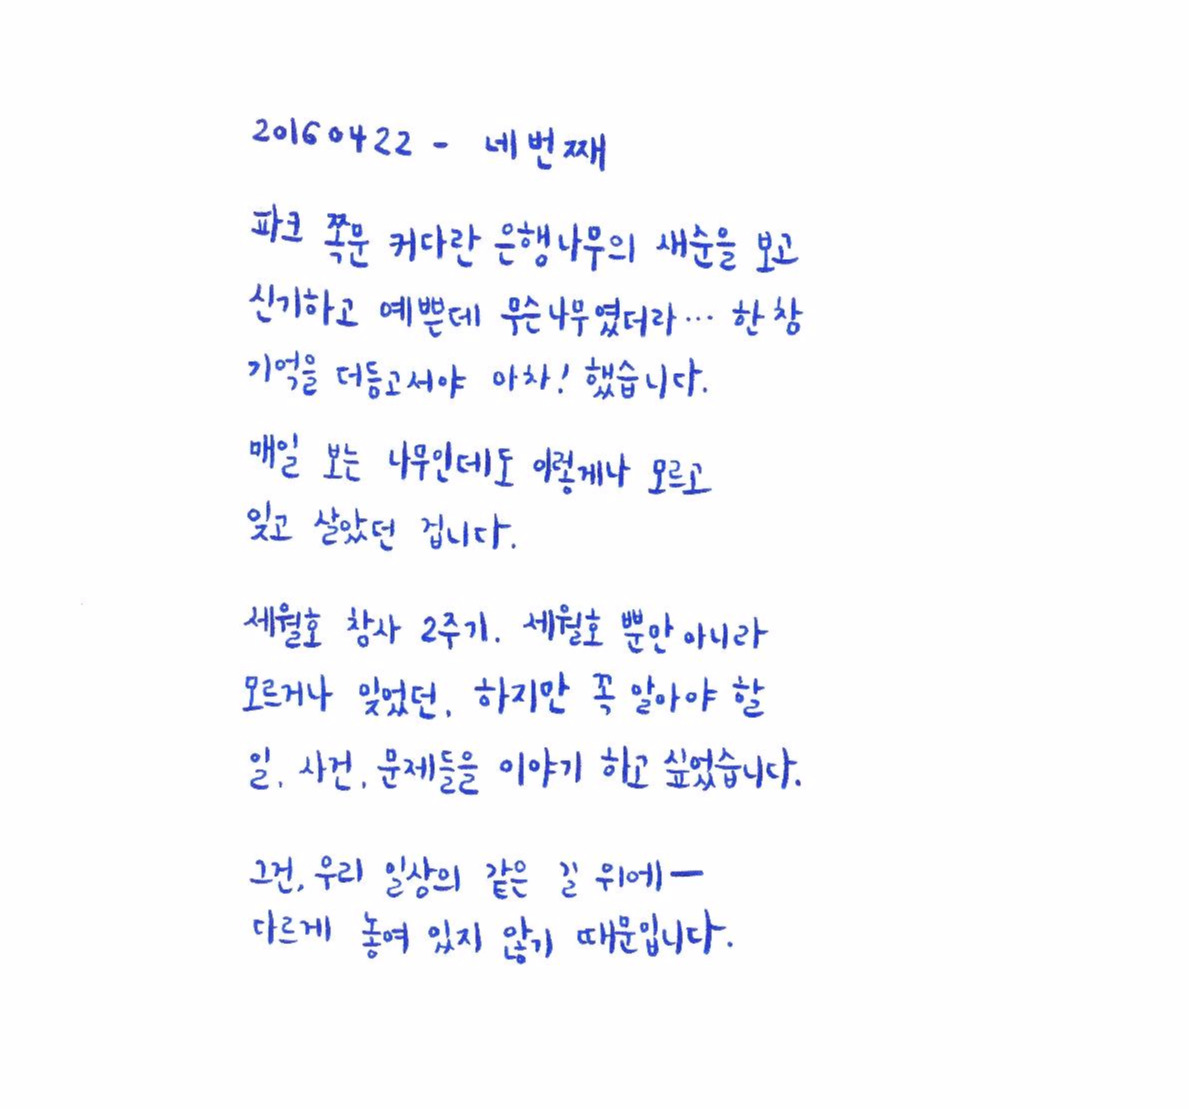 20160422 - 네번째
파크 쪽문 커다란 은행나무의 새순을 보고
신기하고 예쁜데 무슨나무였더라… 한참
기억을 더듬고서야 아차! 했습니다.
매일 보는 나무인데도 이렇게나 모르고
잊고 살았던 겁니다.
세월호 참사 2주기. 세월호 뿐만아니라
모르거나 잊었던, 하지만 꼭 알아야 할
일, 사건, 문제들을 이야기 하고 싶었습니다.
그건, 우리 일상의 같은 길 위에—
다르게 놓여 있지 않기 때문입니다.